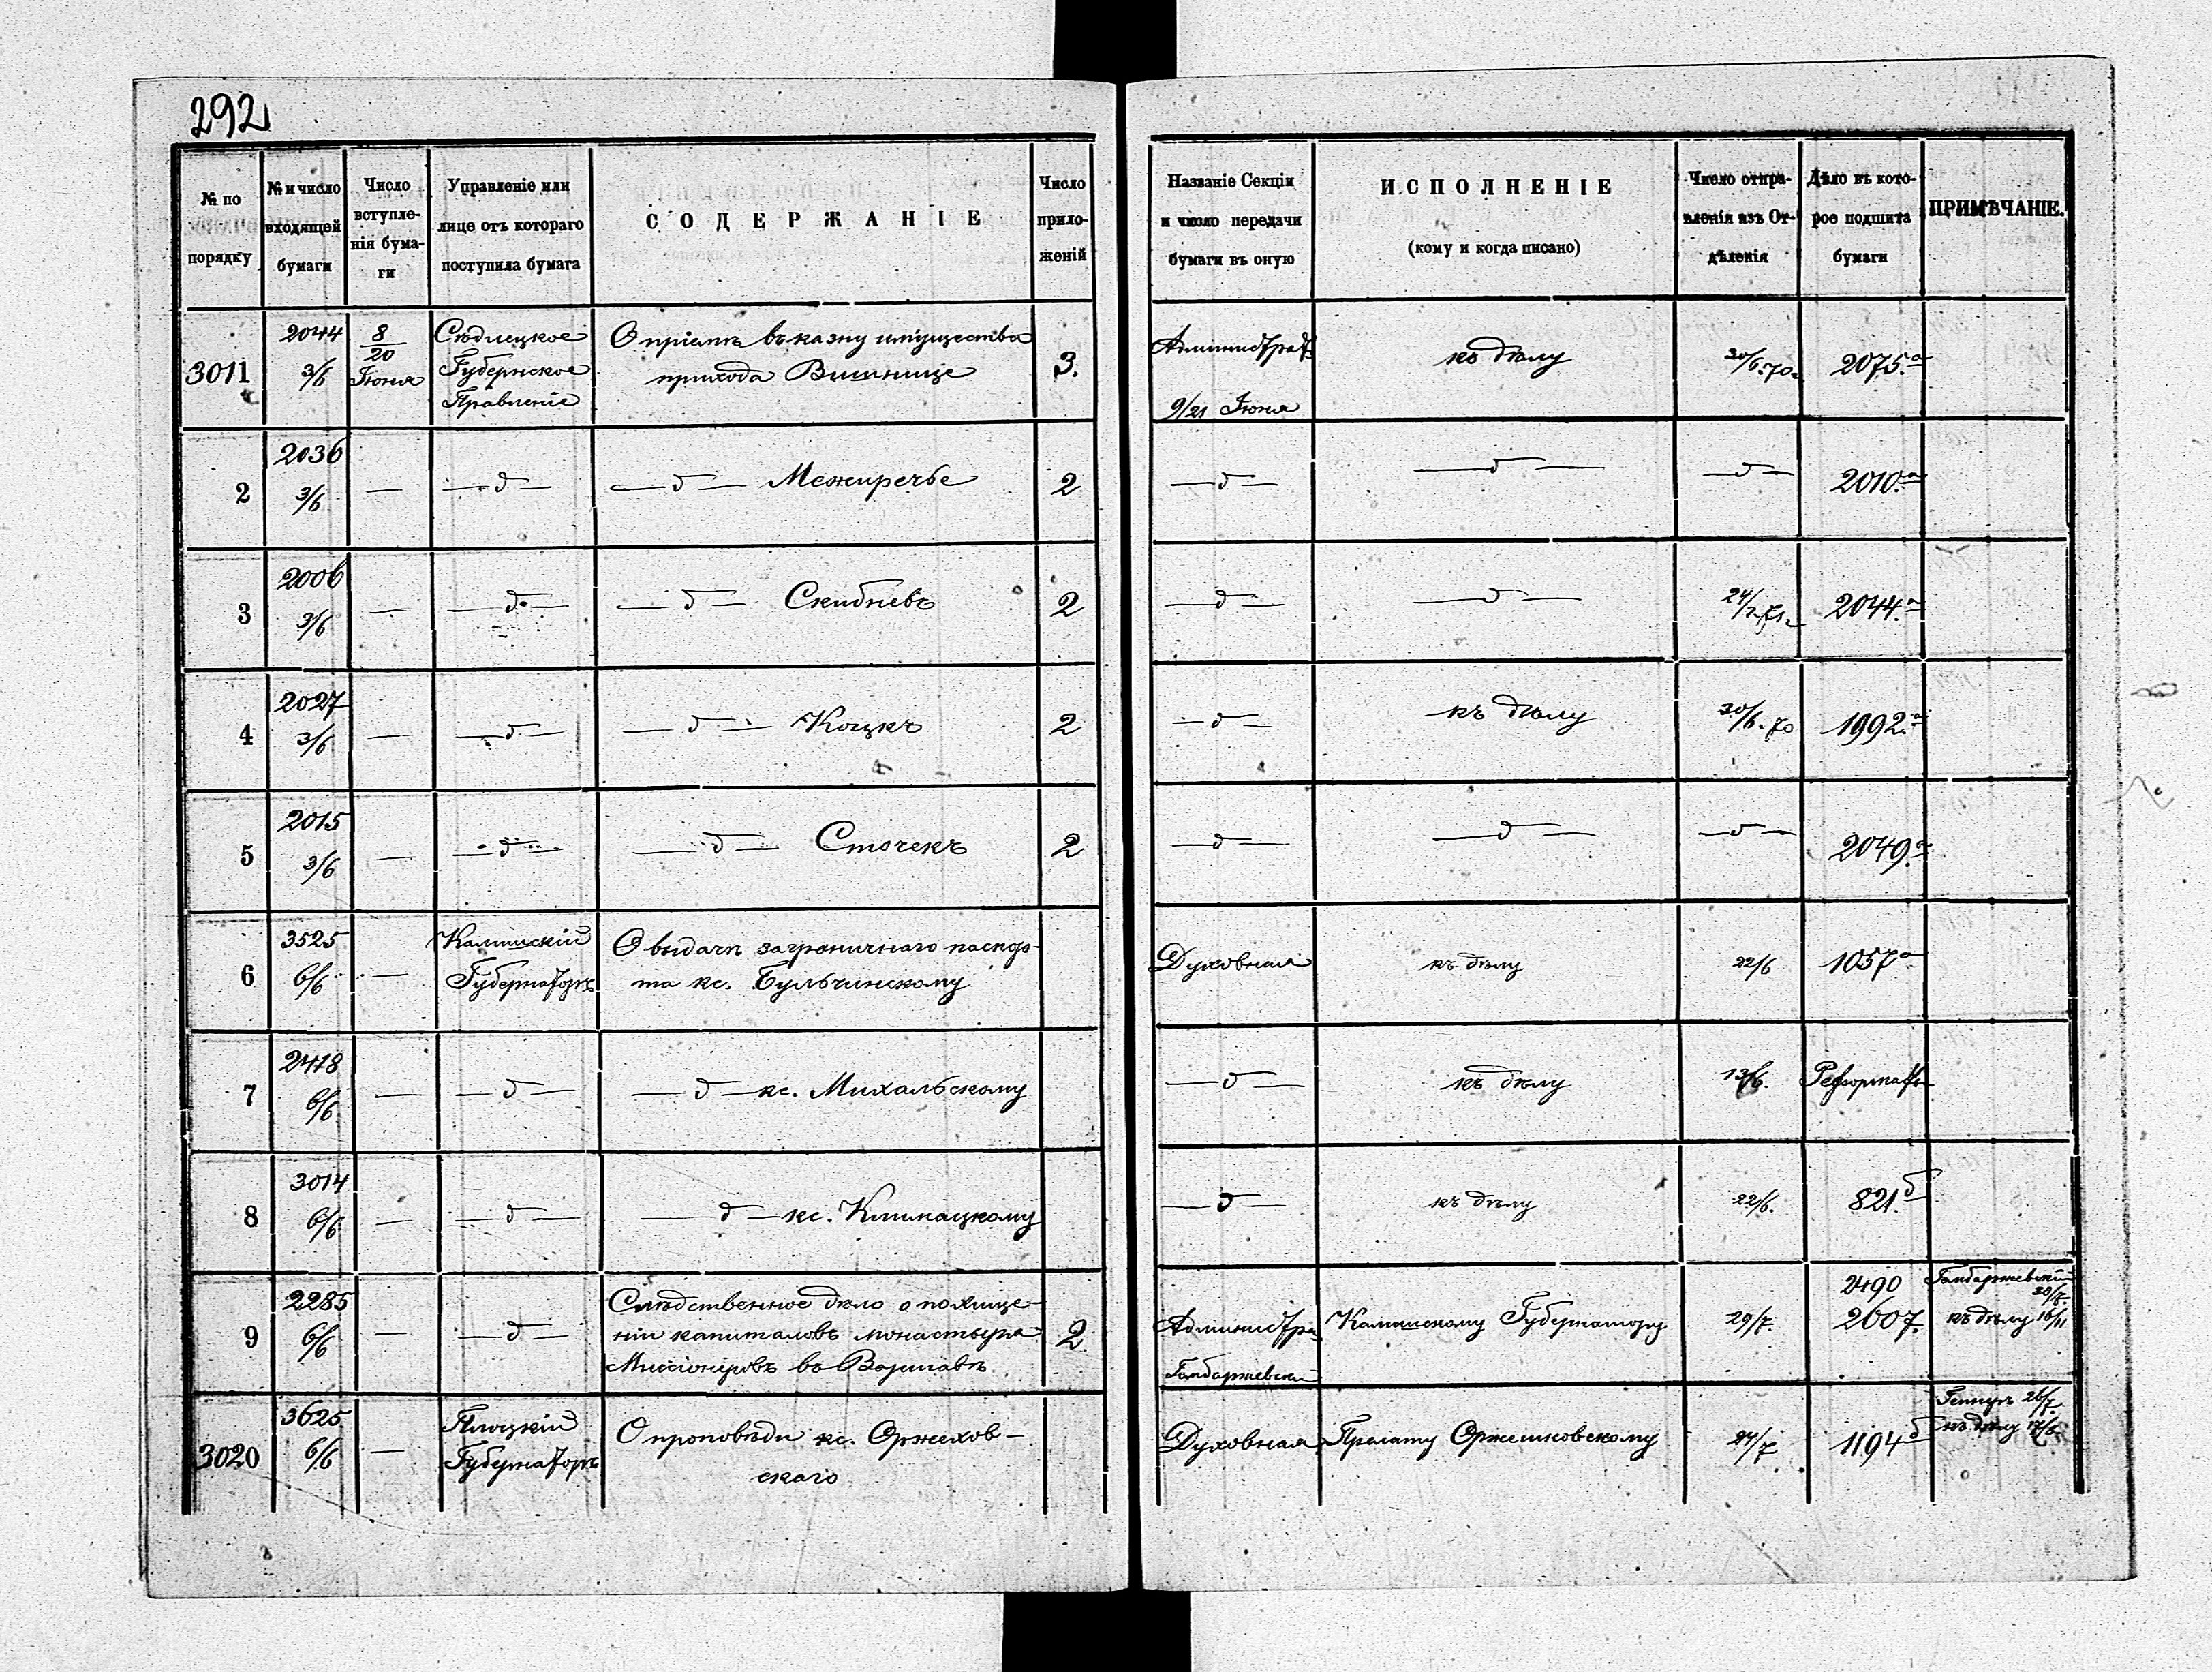 292
№ по порядку
№ и число входящей бумаги
Число вступле-
нія бума-
ги
Управленіе или
лице отъ котораго
поступила бумага
СОДЕРЖАНІЕ
Число
прило-
женій
Названіе Секціи
и число передачи
бумаги въ оную
ИСПОЛНЕНІЕ
(кому и когда писано)
Число отпра-
вленія изъ От-
дѣленія
Дѣло въ кото-
рое подшита
бумаги
ПРИМѢЧАНІЕ.
3011
2044
3/6
8/20
Іюня
Сѣдлецкое
Губернское
Правленіе
О пріемѣ въ казну имущества
прихода Вишнице
3.
Администрат.
9/21 Іюня
къ дѣлу
30/6.70.
2075.а
2
2036
3/6
—
—д—
—д— Межиречье
2
—д—
—д—
—д—
2010.а
3
2006
3/6
—
—д—
—д— Скибневъ
2
—д—
—д—
2044.а
4
2027
3/6
—
—д—
—д— Коцкъ
2
—д—
къ дѣлу
30/6.70
1992.а
5
2015
3/6
—
—д—
—д— Сточекъ
2
—д—
—д—
—д—
2049.а
6
3525
6/6
—
Калишскій
Губернаторъ
О выдачѣ заграничнаго паспор-
та кс. Бульчинскому
Духовная
къ дѣлу
22/6
1057а
7
2418
6/6
—
—д—
—д— кс. Михальскому
—д—
къ дѣлу
13/6.
8
3014
6/6
—
—д—
—д— кс. Климацкому
—д—
къ дѣлу
22/6.
821.б
9
2285
6/6
—
—д—
Слѣдственное дѣло о похище-
ніи капиталовъ монастыря
Миссіонеровъ въ Варшавѣ
2
Администра
Калишскому Губернатору
29/7.
2490
2607.
къ дѣлу 16/11
3020
3625
6/6
—
Плоцкій
Губернаторъ
О проповѣди кс. Оржехов-
скаго
Духовная
Прелату Оржешковскому
24/7
1194б
26/7
къ дѣлу